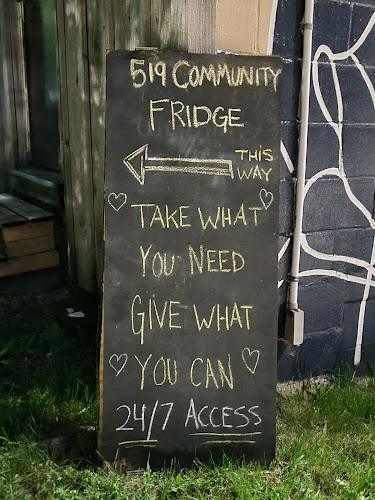 519 COMMUNITY
FRIDGE
THIS
WAY
TAKE WHAT
YOU NEED
GIVE WHAT
YOU CAN
24/7 ACCESS